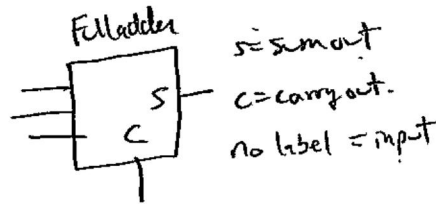 Fulladder
S = sum out
S
C = carry out.
C
no label = input